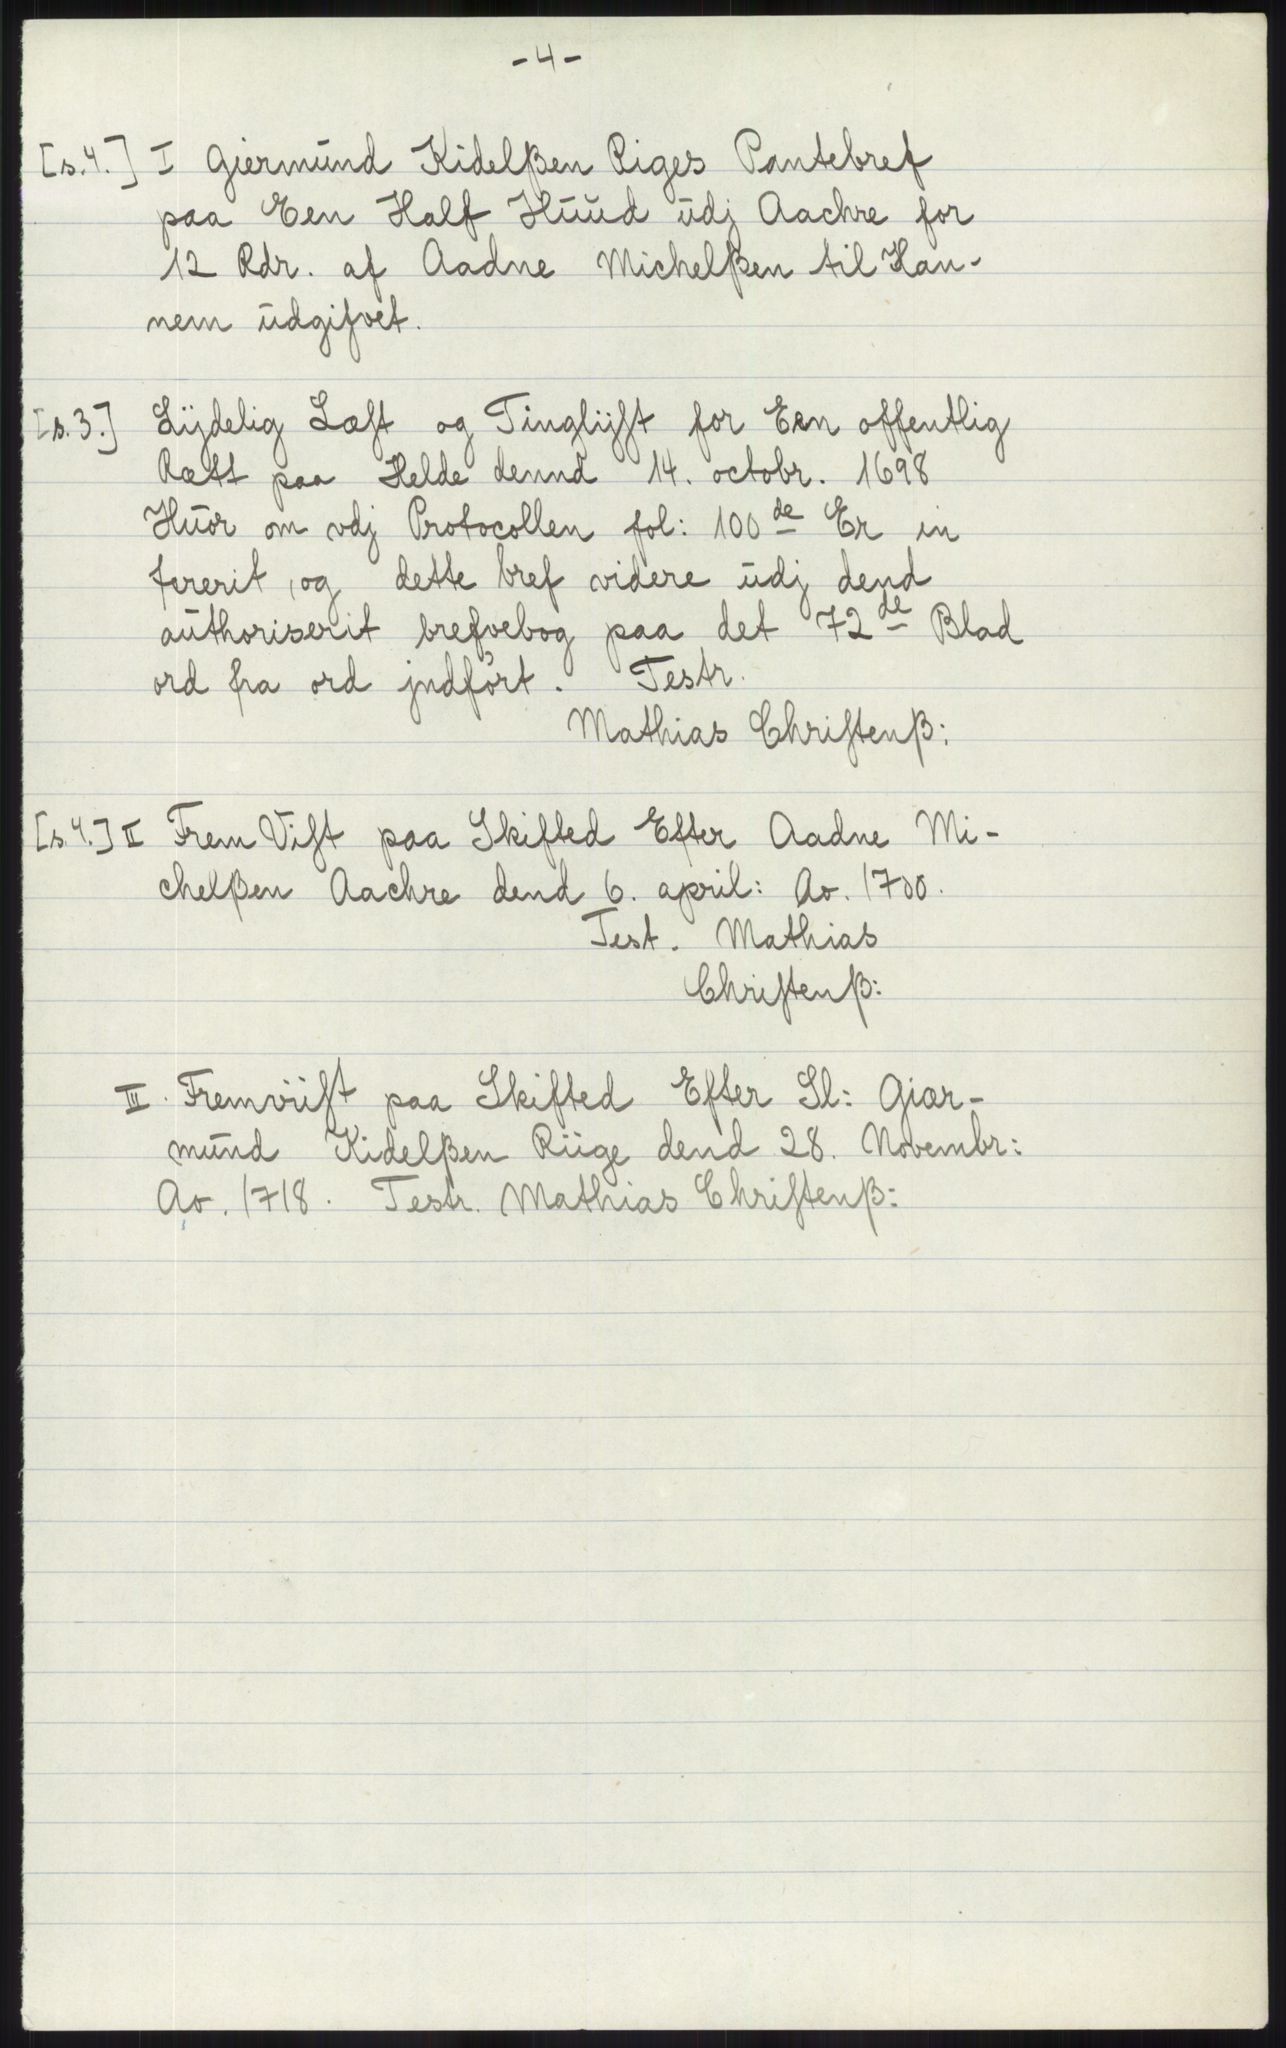 -4-
[s.4.] I Giermůnd Kidelßen Riges Pantebref
paa Een Half Hůůd ůdj Aachre for
12 Rdr. af Aadne Michelßen til Han-
nem ůdgifvet.
[s.3.] Lÿdelig Læſt og Tinglÿſt for Een offentlig
Rætt paa Helde dennd 14. octobr. 1698
Hůor om vdj Protocollen fol: 100de Er in
ſererit, og dette bref videre ůdj dend
aůthoriserit brefvebog paa det 72de Blad
ord fra ord jndført. Testr.
Mathias Chriſtenß:
[s.4.] II Frem Viſt paa Skifted Efter Aadne Mi-
chelßen Aachre dend 6. april: Ao. 1700.
Test. Mathias
Chriſtenß:
III. Fremviiſt paa Skifted Efter Sl: Giær-
můnd Kidelßen Riige dend 28. Novembr:
Ao. 1718. Testr. Mathias Chriſtenß: